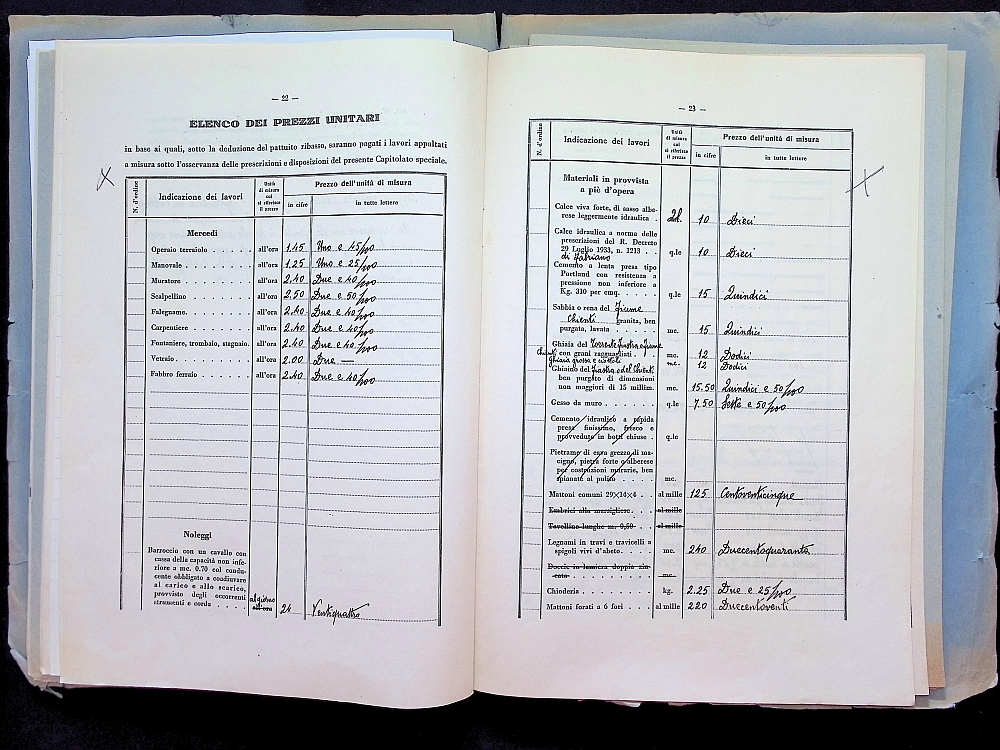 — 22 —
ELENCO DEI PREZZI UNITARI
in base ai quali, sotto la deduzione del pattuito ribasso, saranno pagati i lavori appaltati
a misura sotto l'osservanza delle prescrizioni e disposizioni del presente Capitolato speciale.
N. d'ordine
Indicazione dei lavori
Unità di misura cui si riferisce il prezzo
Prezzo dell'unità di misura
in cifre
in tutte lettere
Mercedi
Operaio terraiolo . . . . . . all'ora 1.45 Uno e 45/100
Manovale . . . . . . . . all'ora 1.25 Uno e 25/100
Muratore . . . . . . . . all'ora 2.40 Due e 40/100
Scalpellino . . . . . . . . all'ora 2.50 Due e 50/100
Falegname. . . . . . . . all'ora 2.40 Due e 40/100
Carpentiere . . . . . . . . all'ora 2.40 Due e 40/100
Fontaniere, trombaio, stagnaio. all'ora 2.40 Due e 40/100
Vetraio . . . . . . . . . all'ora 2.00 Due —
Fabbro ferraio . . . . . . . all'ora 2.40 Due e 40/100
Noleggi
Barroccio con un cavallo con
cassa della capacità non infe-
riore a mc. 0.70 col condu-
cente obbligato a coadiuvare
al carico e allo scarico,
provvisto degli occorrenti al giorno
strumenti e corda . . . . all'ora 24 Ventiquattro
— 23 —
N. d'ordine
Indicazione dei lavori
Unità di misura cui si riferisce il prezzo
Prezzo dell'unità di misura
in cifre
in tutte lettere
Materiali in provvista
a piè d'opera
Calce viva forte, di sasso albe-
rese leggermente idraulica . 10 Dieci
Calce idraulica a norma delle
prescrizioni del R. Decreto
29 Luglio 1933, n. 1213 . . q.le 10 Dieci
di Fabriano
Cemento a lenta presa tipo
Portland con resistenza a
pressione non inferiore a
Kg. 310 per cmq. . . . . . q.le 15 Quindici
Sabbia o rena del Fiume
Chienti granita, ben
purgata, lavata . . . . . mc. 15 Quindici
Ghiaia del Torrente Fiastra e Fiume
Chienti con grani ragguagliati . mc. 12 Dodici
Ghiaia grossa e ciottoli mc. 12 Dodici
Ghiaino del Fiastra o del Chienti
ben purgato di dimensioni
non maggiori di 15 millim. mc. 15.50 Quindici e 50/100
Gesso da muro . . . . . . q.le 7.50 Sette e 50/100
Cemento idraulico a rapida
presa finissimo, fresco e
provveduto in botti chiuse . q.le
Pietrame di cava grezzo di ma-
cigno, pietra forte o alberese
per costruzioni murarie, ben
spianate al pulito . . . . mc.
Mattoni comuni 29×14×4 . . al mille 125 Centoventicinque
Embrici alla marsigliese. . . al mille
Tavelline lunghe m. 0,50 . . al mille
Legnami in travi e travicelli a
spigoli vivi d'abete. . . . . mc. 240 Duecentoquaranta
Doccie in lamiera doppia zin-
cata . . . . . . . . . mc
Chioderia . . . . . . . . kg. 2.25 Due e 25/100
Mattoni forati a 6 fori . . . al mille 220 Duecentoventi